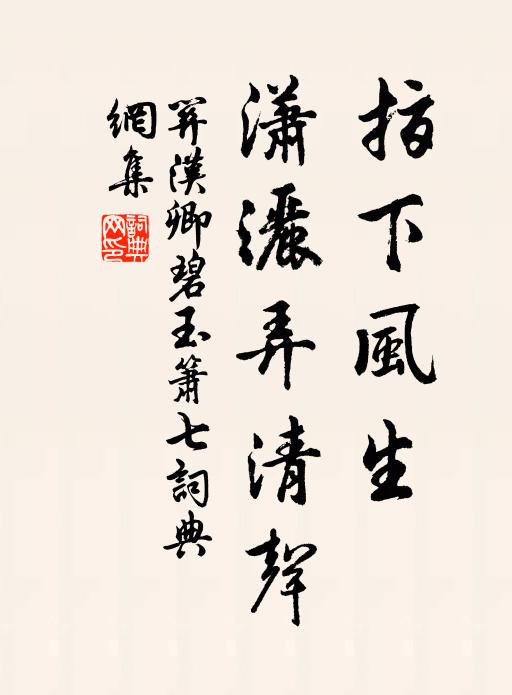 指下風生
瀟灑弄清聲
羿漢卿碧玉簫七詞典
網集
詞典
网印